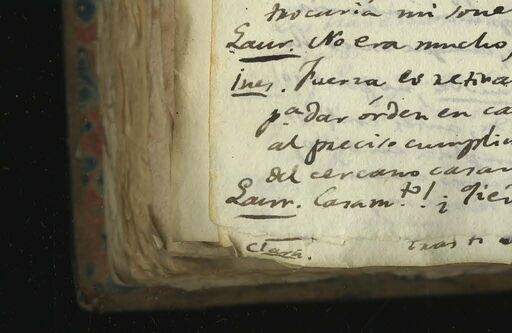 trocaria mi
Laur. No era mucho,
Ines. Fuerza es retira
pª dar órden en ca
al preciso cumpli
del cercano casam
Laur. Casam.to! ¡
Clara.